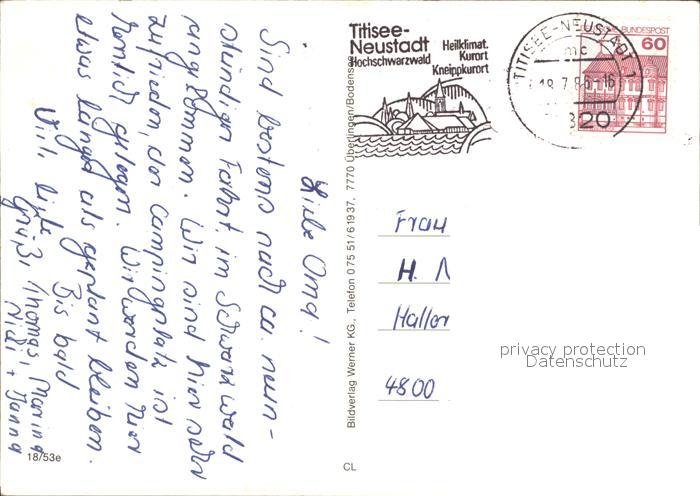 Liebe Oma!
Sind bestens nach ca. neun-
stündiger Fahrt im Schwarzwald
angekommen. Wir sind hier sehr
zufrieden, der Campingplatz ist
herrlich gelegen. Wir werden hier
etwas länger als geplant bleiben.
Bis bald
Viele liebe
Grüße, Thomas, Marina
Nicki + Janna
18/53e
Bildverlag Werner KG., Telefon 0 75 51/6 19 37, 7770 Überlingen/Bodensee
CL
Titisee-
Neustadt
Hochschwarzwald
Heilklimat.
Kurort
Kneippkurort
TITISEE-NEUSTADT 1
mc
18.7.86-16
820
BUNDESPOST
60
Frau
H.
Haller
4800
privacy protection
Datenschutz